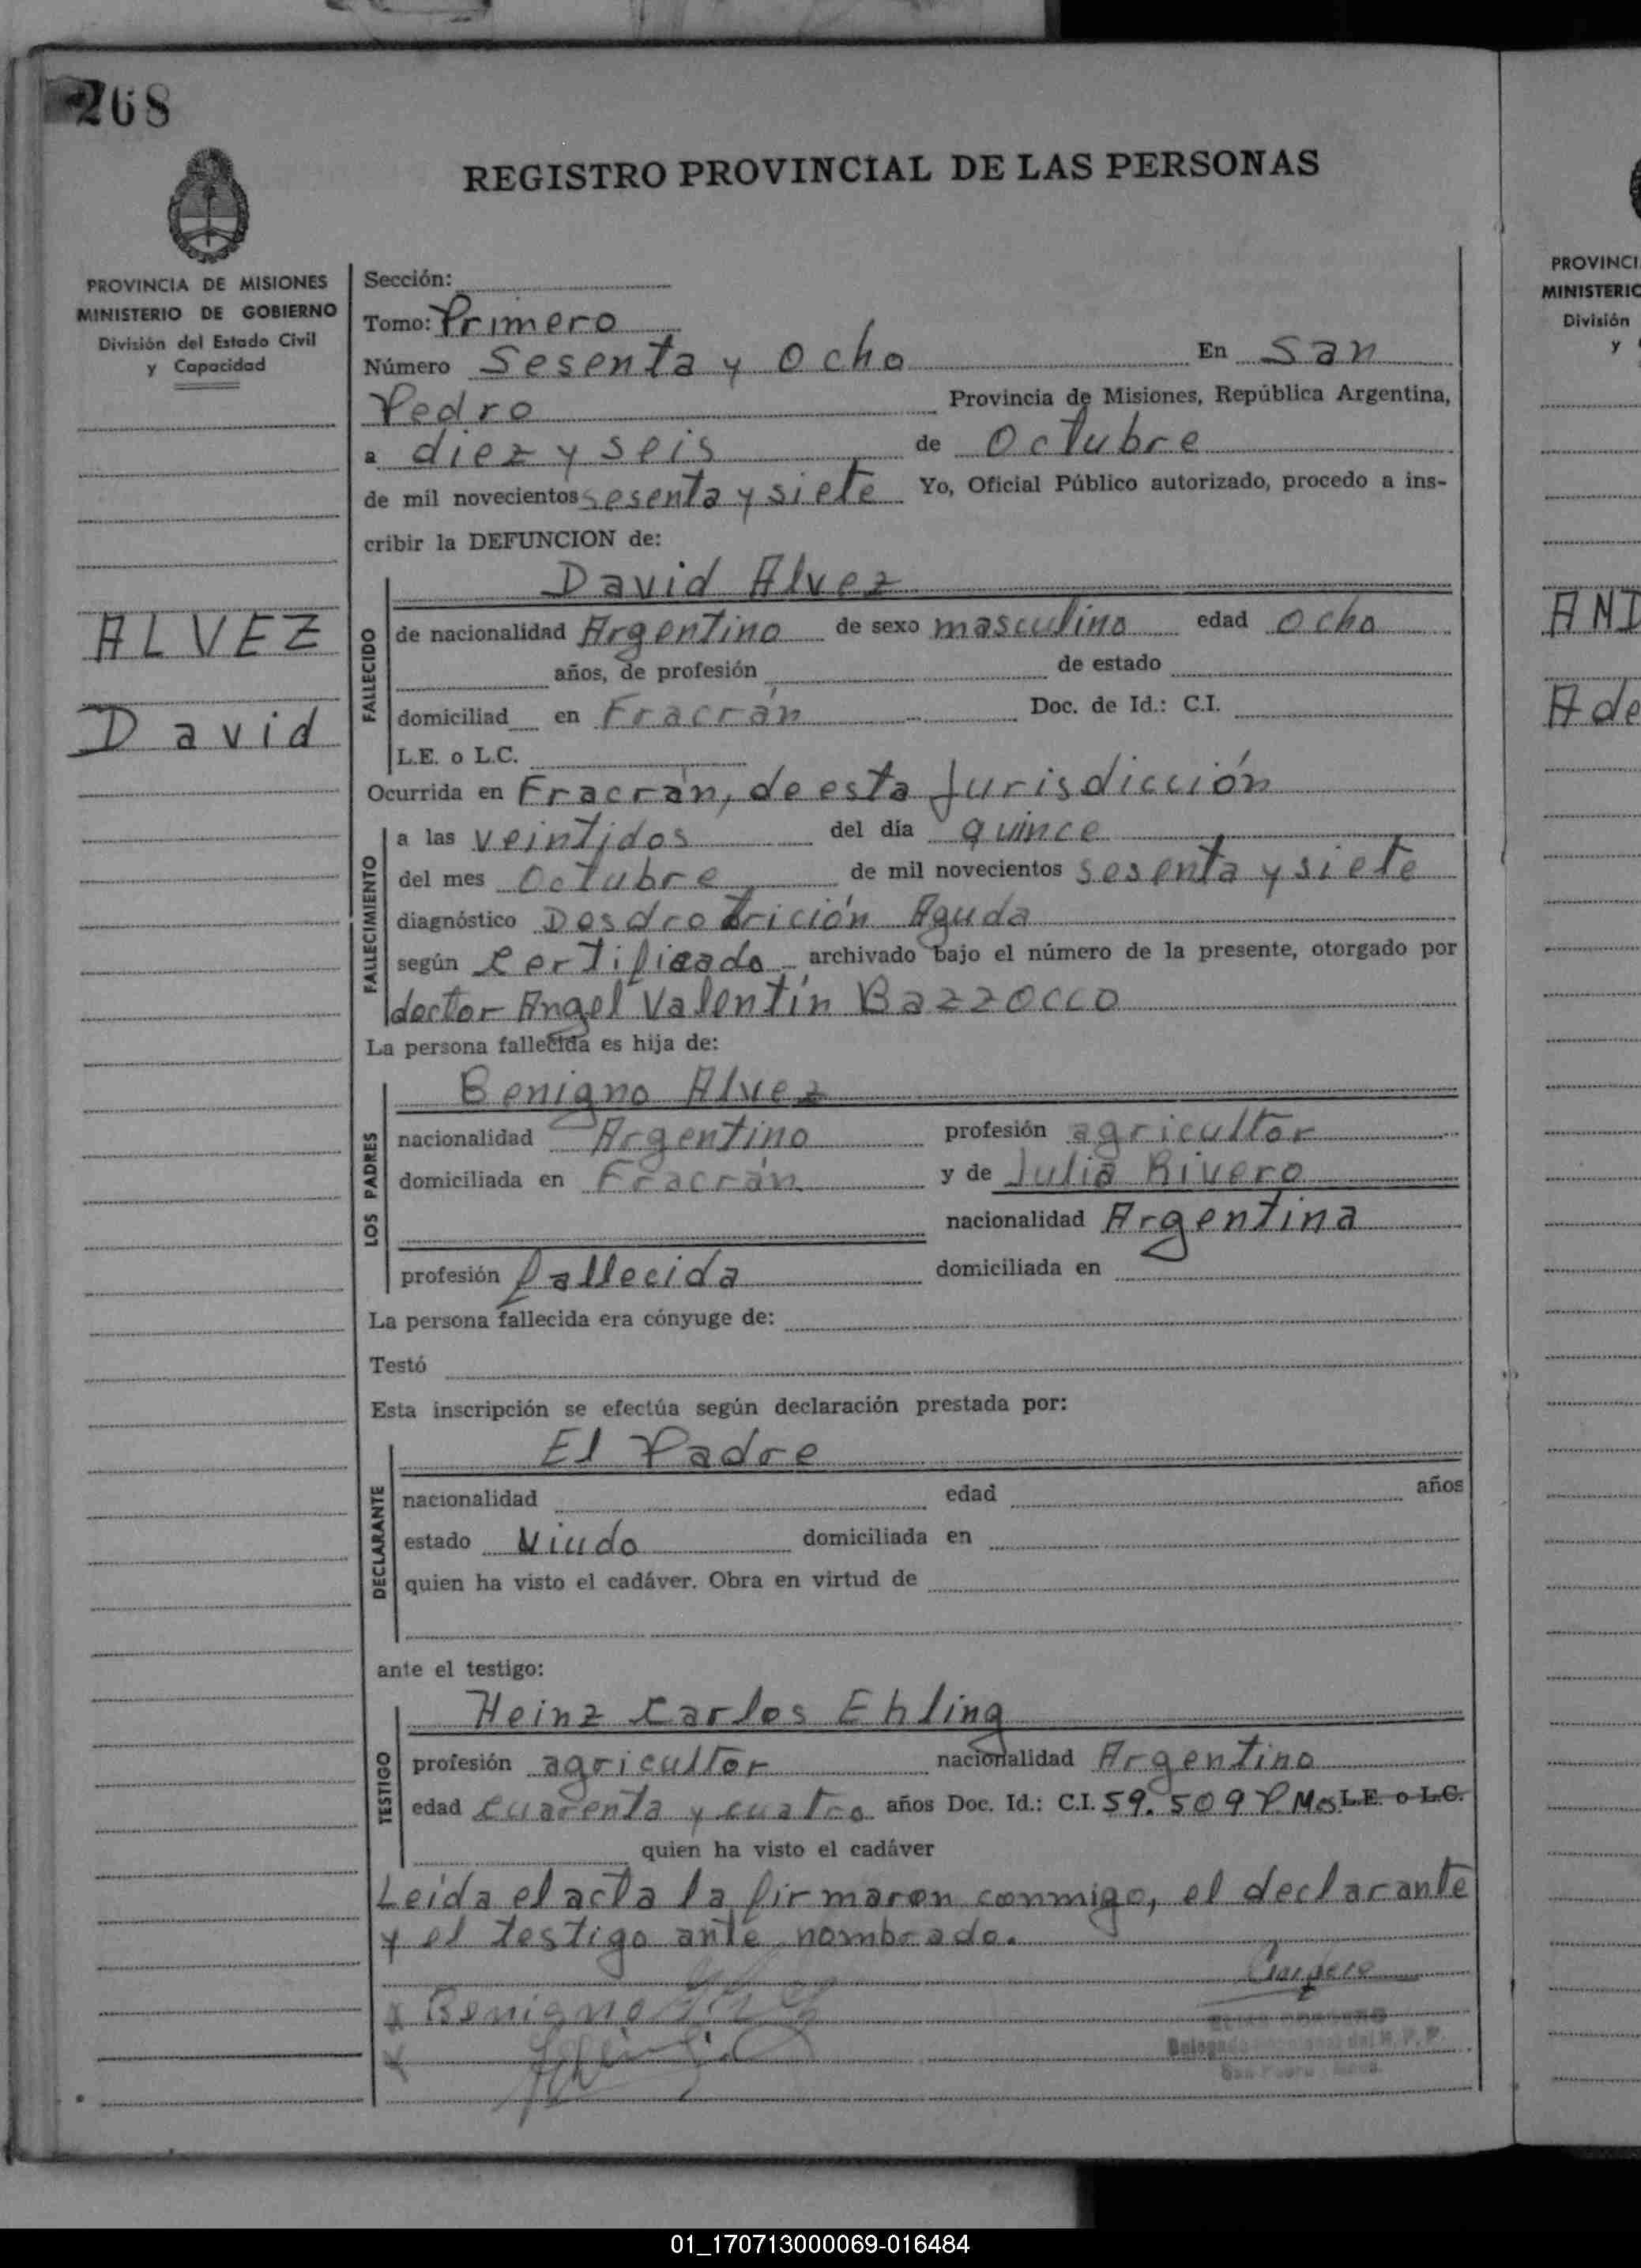 268
REGISTRO PROVINCIAL DE LAS PERSONAS
PROVINCIA DE MISIONES
MINISTERIO DE GOBIERNO
División del Estado Civil
y Capacidad
ALVEZ
David
Sección:
Tomo: Primero
Número Sesenta y Ocho En San
Pedro Provincia de Misiones, República Argentina,
a diez y seis de Octubre
de mil novecientos sesenta y siete Yo, Oficial Público autorizado, procedo a ins-
cribir la DEFUNCION de:
David Alvez
FALLECIDO
de nacionalidad Argentino de sexo masculino edad Ocho
años, de profesión de estado
domiciliad en Fracrán Doc. de Id.: C.I.
L.E. o L.C.
Ocurrida en Fracrán, de esta Jurisdicción
FALLECIMIENTO
a las veintidos del día quince
del mes Octubre de mil novecientos sesenta y siete
diagnóstico Desdrotrición Aguda
según Certificado archivado bajo el número de la presente, otorgado por
doctor Angel Valentín Bazzocco
La persona fallecida es hija de:
LOS PADRES
Benigno Alvez
nacionalidad Argentino profesión agricultor
domiciliada en Fracrán y de Julia Rivero
nacionalidad Argentina
profesión fallecida domiciliada en
La persona fallecida era cónyuge de:
Testó
Esta inscripción se efectúa según declaración prestada por:
DECLARANTE
El Padre
nacionalidad edad años
estado Viudo domiciliada en
quien ha visto el cadáver. Obra en virtud de
ante el testigo:
TESTIGO
Heinz Carlos Ehling
profesión agricultor nacionalidad Argentino
edad cuarenta y cuatro años Doc. Id.: C.I. 59.509 P Mos L.E. o L.C.
quien ha visto el cadáver
Leida el acta la firmaron conmigo, el declarante
y el testigo ante nombrado.
x Benigno
x
PROVINCI
MINISTERIO
División
y
AND
Ade
01_170713000069-016484